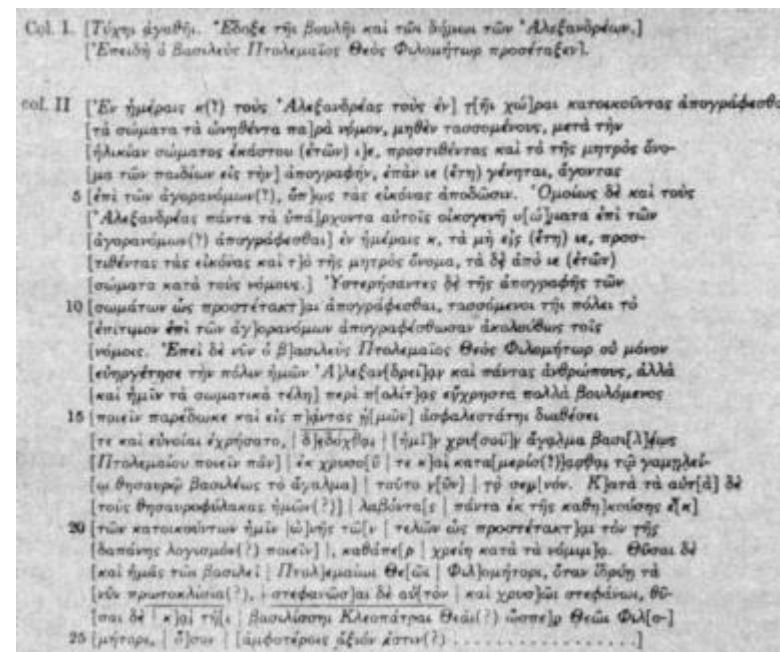 Col. I. [Τύχηι ἀγαθῆι. Ἔδοξε τῆι βουλῆι καὶ τῶι δήμωι τῶν Ἀλεξανδρέων.]
[Ἐπειδὴ ὁ βασιλεὺς Πτολεμαῖος Θεὸς Φιλομήτωρ προσέταξεν].
col. II [Ἐν ἡμέραις κ(?) τοὺς Ἀλεξανδρέας τοὺς ἐν] τ[ῆι χώ]ραι κατοικοῦντας ἀπογράφεσθα
[τὰ σώματα τὰ ὠνηθέντα πα]ρὰ νόμον, μηθὲν τασσομένους, μετὰ τὴν
[ἡλικίαν σώματος ἑκάστου (ἐτῶν) ι]ε, προστιθέντας καὶ τὸ τῆς μητρὸς ὄνο-
[μα τῶν παιδίων εἰς τὴν] ἀπογραφήν, ἐπὰν ιε (ἔτη) γένηται, ἄγοντας
5 [ἐπὶ τῶν ἀγορανόμων(?), ὅπ]ως τὰς εἰκόνας ἀποδῶσιν. Ὁμοίως δὲ καὶ τοὺς
[Ἀλεξανδρέας πάντα τὰ ὑπά]ρχοντα αὐτοῖς οἰκογενῆ σ[ώ]ματα ἐπὶ τῶν
[ἀγορανόμων(?) ἀπογράφεσθαι] ἐν ἡμέραις κ, τὰ μὴ εἰς (ἔτη) ιε, προσ-
[τιθέντας τὰς εἰκόνας καὶ τ]ὸ τῆς μητρὸς ὄνομα, τὰ δὲ ἀπὸ ιε (ἐτῶν)
[σώματα κατὰ τοὺς νόμους.] Ὑστερήσαντες δὲ τῆς ἀπογραφῆς τῶν
10 [σωμάτων ὡς προστέτακτ]αι ἀπογράφεσθαι, τασσόμενοι τῆι πόλει τὸ
[ἐπίτιμον ἐπὶ τῶν ἀγ]ορανόμων ἀπογραφέσθωσαν ἀκολούθως τοῖς
[νόμοις. Ἐπεὶ δὲ νῦν ὁ β]ασιλεὺς Πτολεμαῖος Θεὸς Φιλομήτωρ οὐ μόνον
[εὐηργέτησε τὴν πόλιν ἡμῶν Ἀ]λεξαν[δρει]αν καὶ πάντας ἀνθρώπους, ἀλλὰ
[καὶ ἡμῖν τὰ σωματικὰ τέλη] περὶ π[ολίτ]ας εὔχρηστα πολλὰ βουλόμενος
15 [ποιεῖν παρέδωκε καὶ εἰς π]άντας ἡ[μῶν] ἀσφαλεστάτηι διαθέσει
[τε καὶ εὐνοίαι ἐχρήσατο, | δ]εδόχθαι | [ἡμῖ]ν χρυ[σοῦ]ν ἄγαλμα βασι[λ]έως
[Πτολεμαίου ποιεῖν πᾶν] | ἐκ χρυσο[ῦ | τε κ]αὶ κατα[μερίσ(?)]αρθαι τῷ γαμηλεί-
[ῳ θησαυρῷ βασιλέως τὸ ἄγαλμα] | τοῦτο ν[ῦν] | τὸ σεμ[νόν. Κ]ατὰ τὰ αὐτ[ὰ] δὲ
[τοὺς θησαυροφύλακας ἡμῶν(?)] | λαβόντα[ς | πάντα ἐκ τῆς καθη]κούσης ἐ[κ]
20 [τῶν κατοικούντων ἡμῖν |ὠ]νῆς τῶ[ν | τελῶν ὡς προστέτακτ]αι τὸν τῆς
[δαπάνης λογισμόν(?) ποιεῖν] |, καθάπε[ρ | χρείη κατὰ τὰ νόμιμ]α. Θῦσαι δὲ
[καὶ ἡμᾶς τῶι βασιλεῖ | Πτολ]εμαίωι Θε[ῶι | Φιλ]ομήτορι, ὅταν ἱδρύῃ τὰ
[νῦν πρωτοκλίσια(?), | στεφανῶσ]αι δὲ αὐ[τὸν | καὶ χρυσ]ῶι στεφάνωι, θῦ-
[σαι δὲ | κ]αὶ τῆ[ι | βασιλίσσηι Κλεοπάτραι Θεᾶι(?) ὥσπε]ρ Θεῶι Φιλ[ο-]
25 [μήτορι, | ὅ]σων | [ἀμφοτέροις ἄξιόν ἐστιν(?) . . . . . . . . . . . . . . . . .]